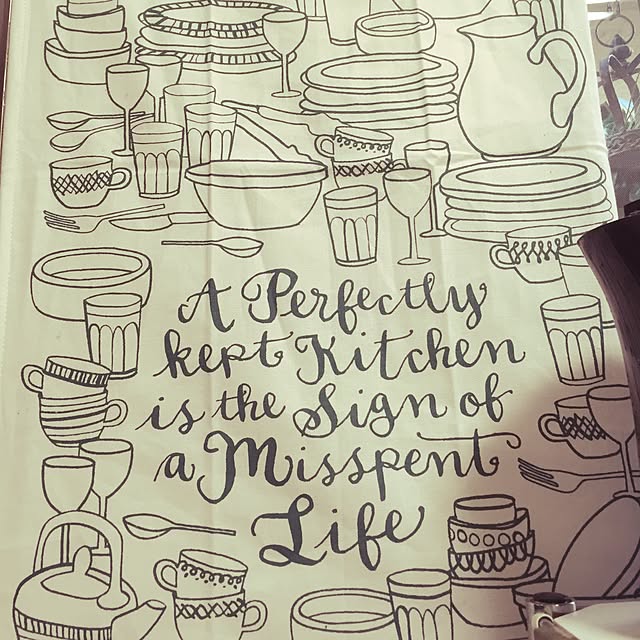 A Perfectly
kept Kitchen
is the Sign of
a Misspent
Life